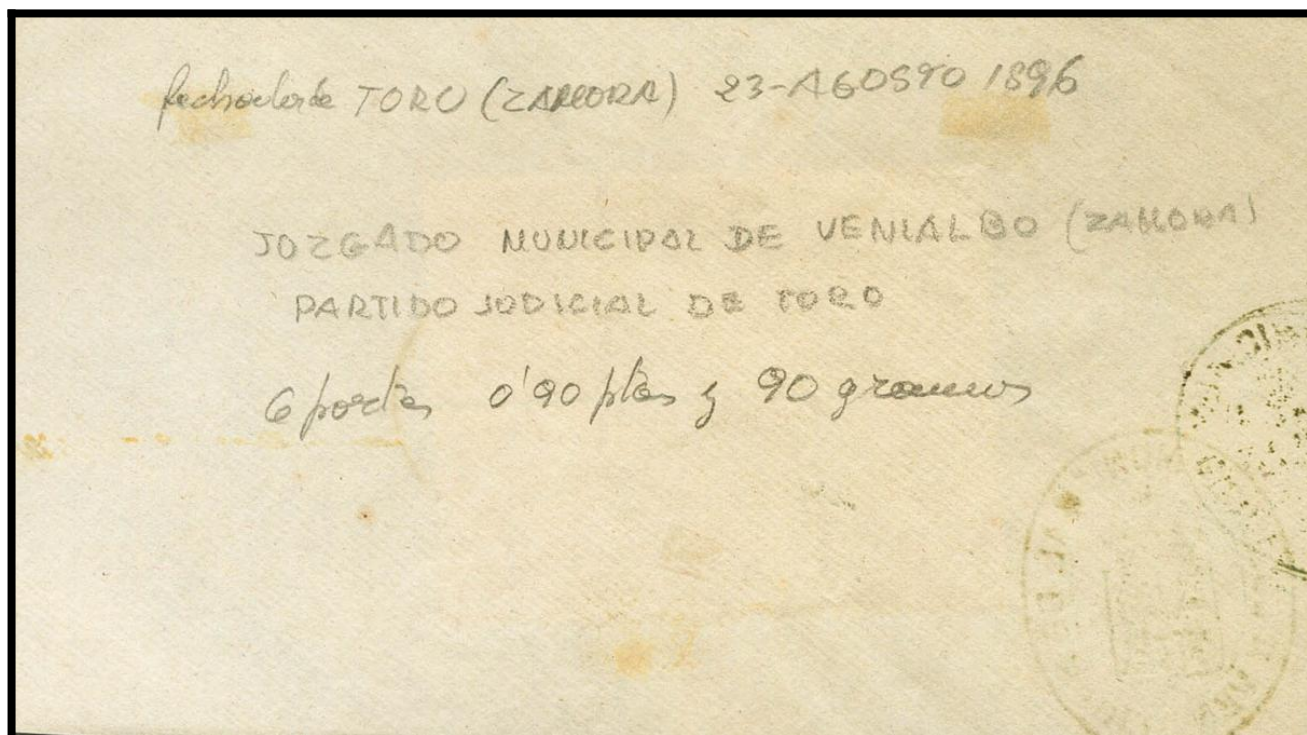 fechador de TORO (ZAMORA) 23-AGOSTO 1896
JUZGADO MUNICIPAL DE VENIALBO (ZAMORA)
PARTIDO JUDICIAL DE TORO
6 portes 0'90 ptas y 90 gramos